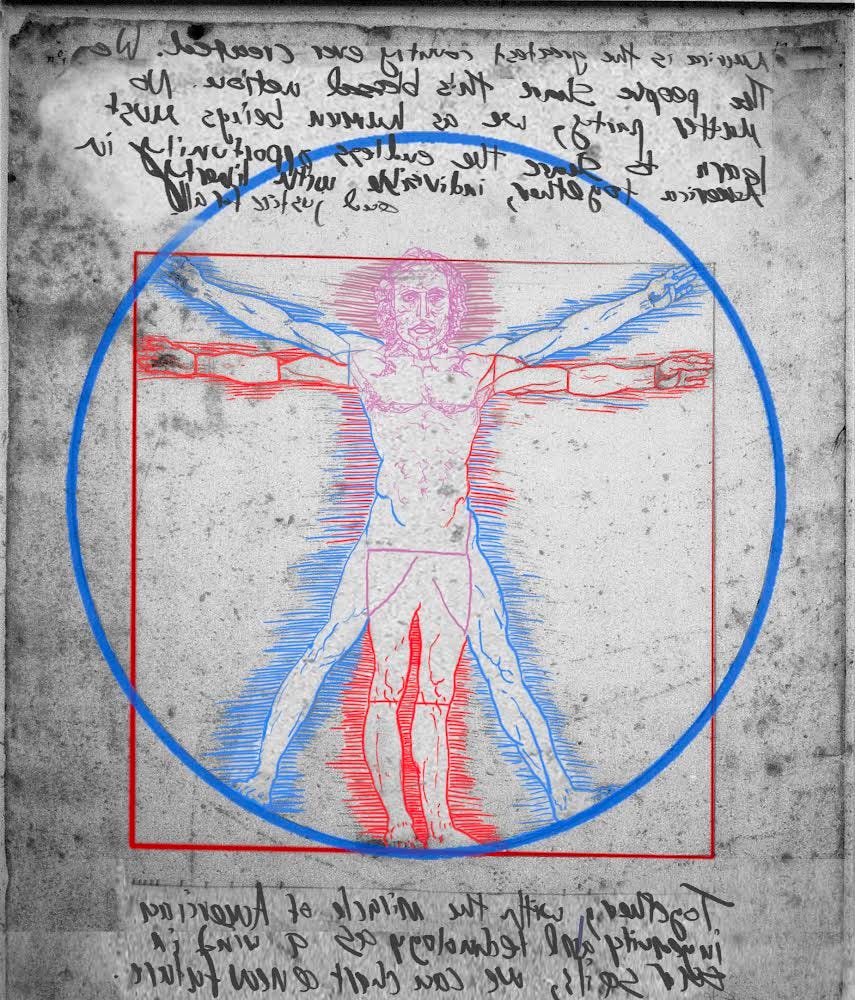 America is the greatest country ever created. We
The people share this blessed nation. No
matter party, we as human beings must
learn to share the endless opportunity in
America together, indivisible with liberty
and justice for all
Together, with the miracle of American
ingenuity and technology as a wind in
sails, we can chart a new future.